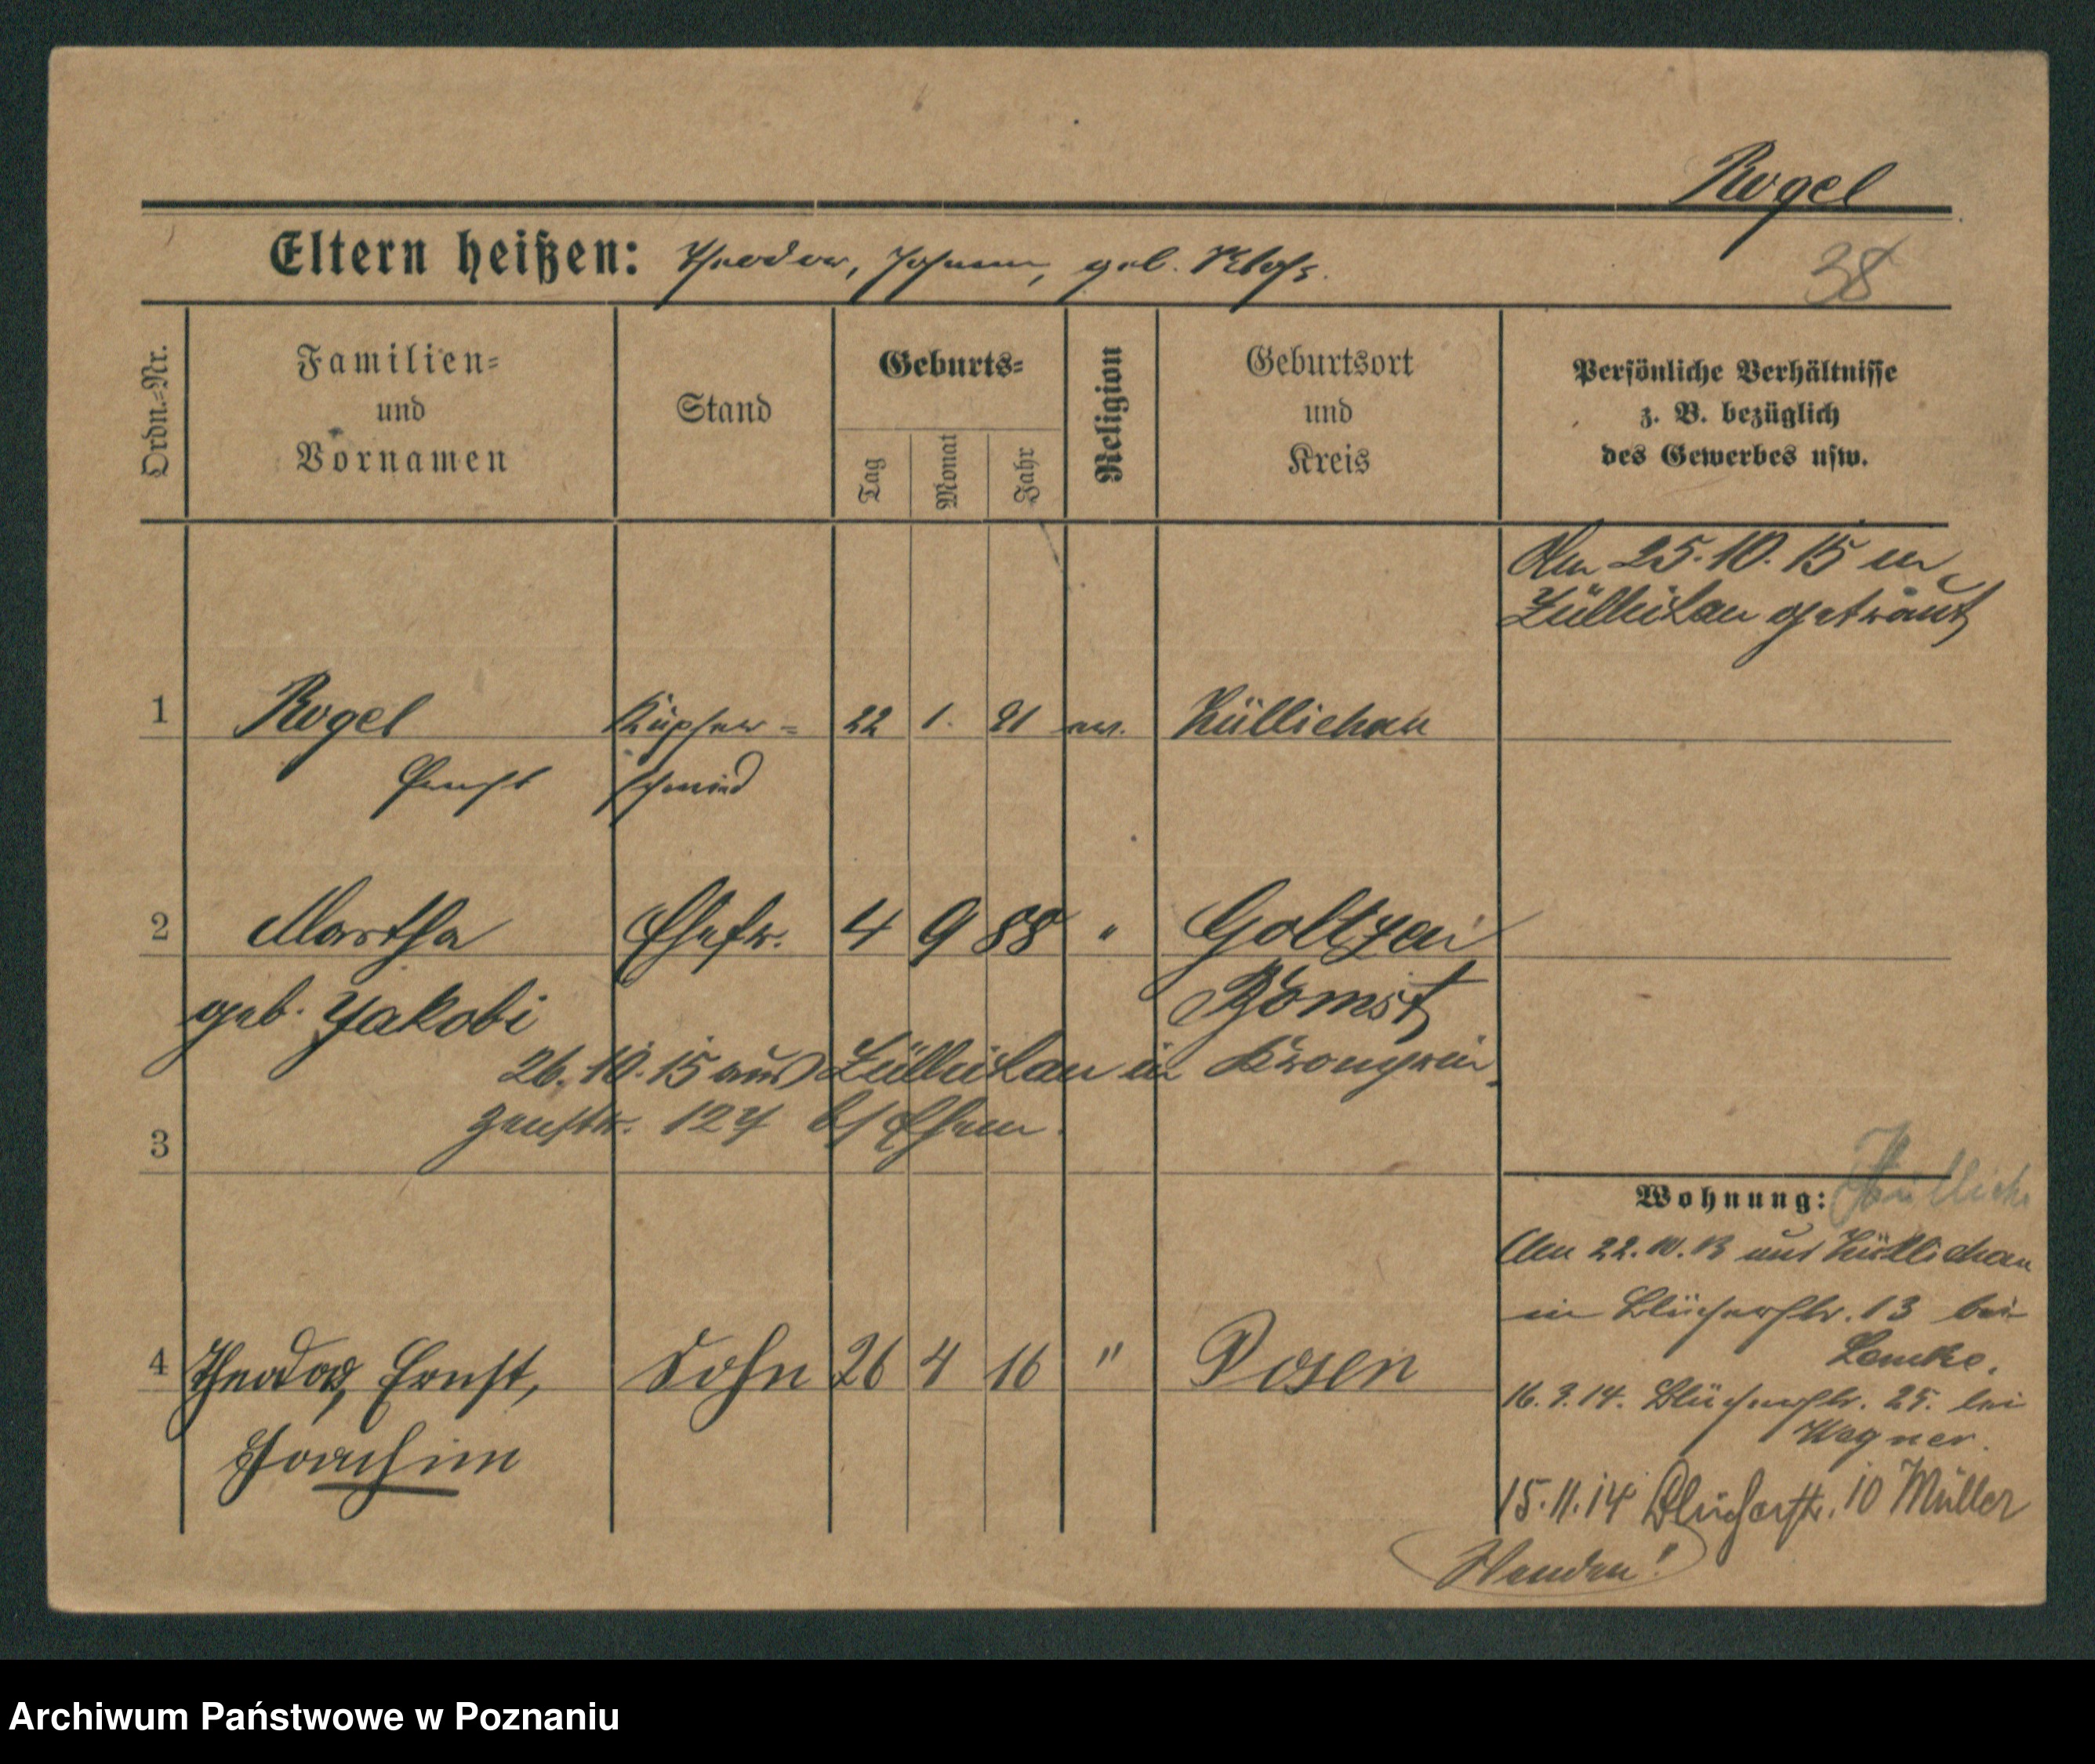 Rogel
Eltern heißen: Theodor, Johanna, geb. Klohs.
38
Ordn.-Nr.
Familien=
und
Vornamen
Stand
Geburts=
Tag
Monat
Jahr
Religion
Geburtsort
und
Kreis
Persönliche Verhältnisse
z. B. bezüglich
des Gewerbes usw.
Am 25.10.15 in
Züllichau getraut
1 Rogel Kupfer= 22 1. 81 ev. Züllichau
Ernst schmied
2 Martha Ehefr. 4 9 88 " Goltzen
geb. Jakobi Bomst
26.10.15 aus Züllichau in Kronprin
zenstr. 127 Ehem.
3
Wohnung: Züllich
Am 22.10.13 aus Züllichau
in Blücherstr. 13 bei
Lemke.
4 Theodor, Ernst, Sohn 26 4 16 " Posen
Joachim
16.3.14. Blücherstr. 25. bei
Wagner.
15.11.14 Blücherstr. 10 Müller
Wenden!
Archiwum Państwowe w Poznaniu